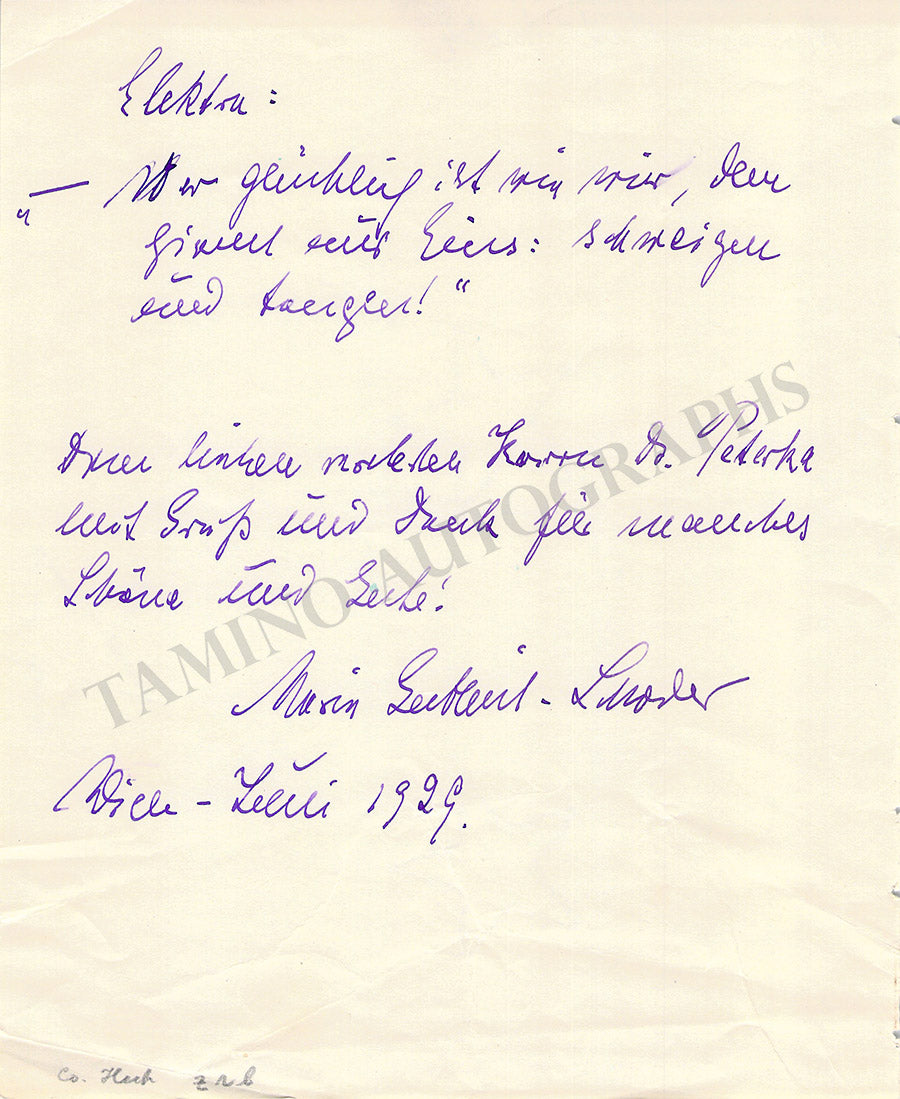 Elektra:
"— Wer glücklich ist wie wir, dem
ziemt nur Eins: schweigen
und tanzen!"
Dem lieben verehrten Herrn B. Peterka
mit Gruß und Dank für manches
Schöne und Gute!
Marie Gutheil-Schoder
Wien – Juni 1929.
TAMINO AUTOGRAPHS